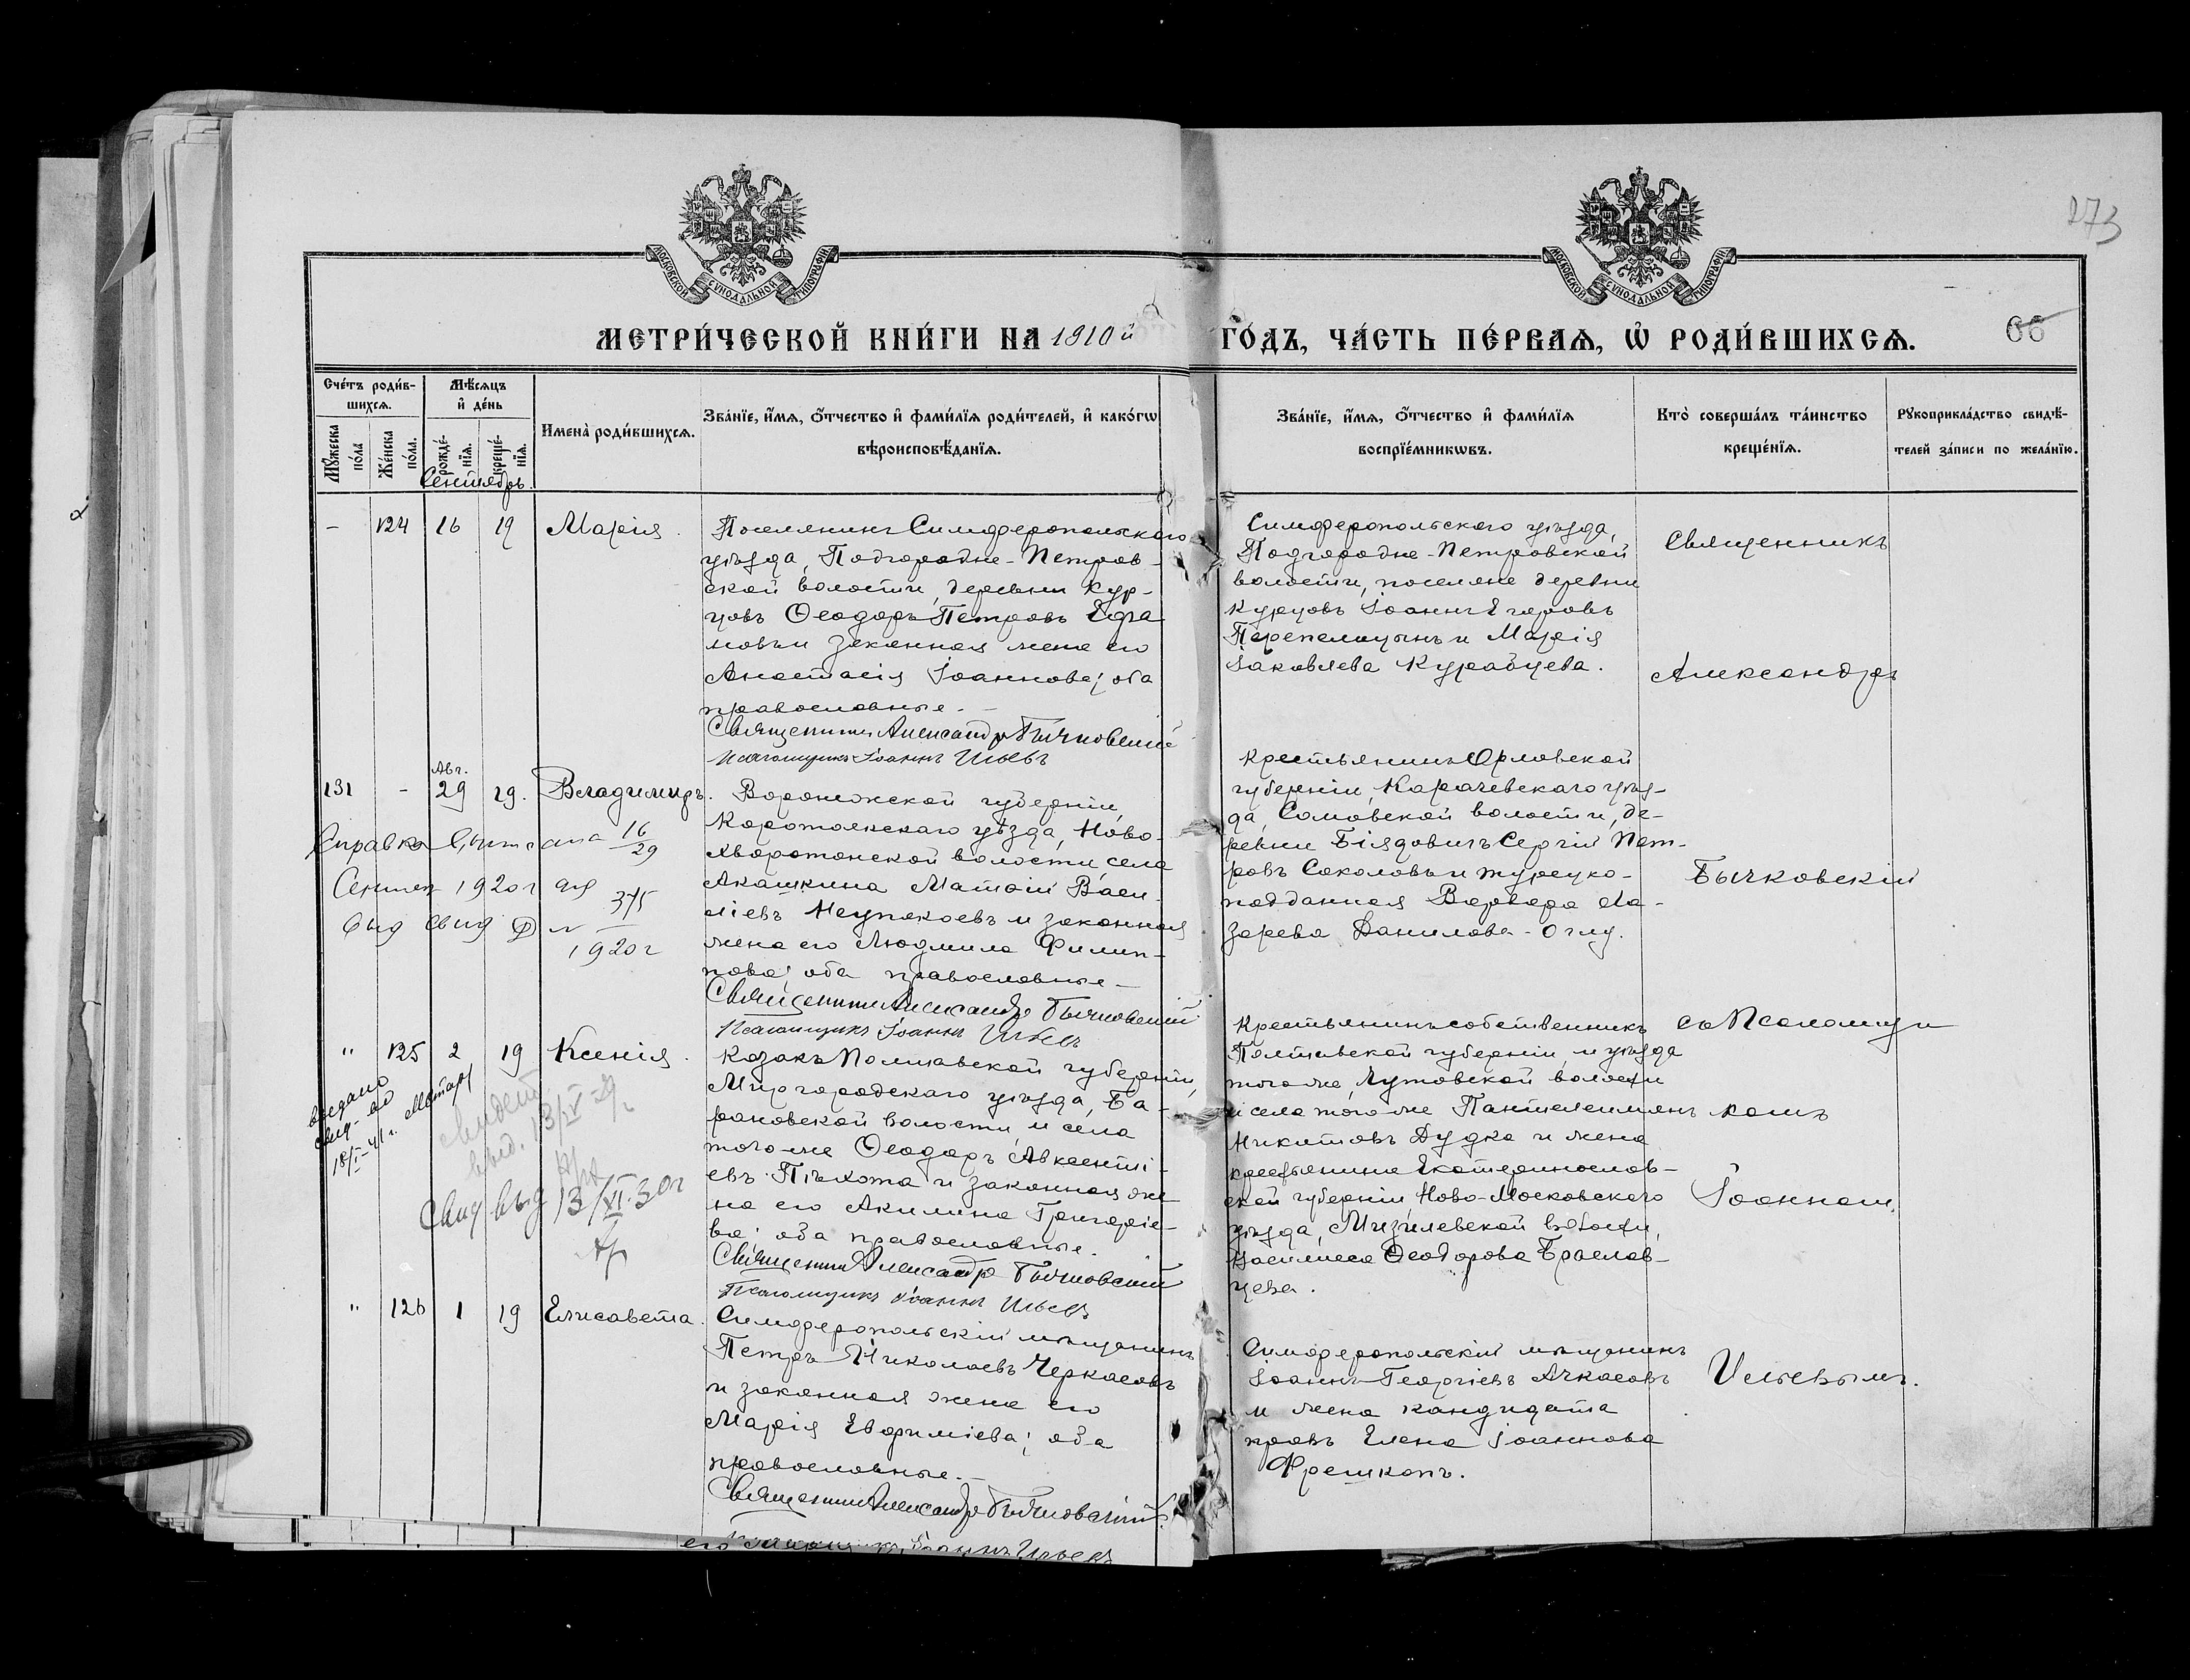 273
МОСКОВСКОЙ СУНОДАЛЬНОЙ ТИПОГРАФІИ.
МОСКОВСКОЙ СУНОДАЛЬНОЙ ТИПОГРАФІИ.
МЕТРИ́ЧЕСКОЙ КНИ́ГИ НА 1910 й
ГО́ДЪ, ЧА́СТЬ ПЕ́РВАѦ, Ѽ РОДИ́ВШИХСѦ.
66
Сче́тъ роди́в-
шихсѧ.
Мꙋ́жеска
по́ла
Же́нска
по́ла.
Мѣ́сѧцъ
и҆ де́нь
рожде́-
нїѧ.
креще́-
нїѧ.
Сентябрь.
Имена̀ роди́вшихсѧ.
Зва́нїе, и҆́мѧ, ѻ҆́тчество и҆ фами́лїѧ роди́телей, и҆ како́гѡ
вѣроисповѣ́данїѧ.
Зва́нїе, и҆́мѧ, ѻ҆́тчество и҆ фами́лїѧ
воспрїе́мникѡвъ.
Кто̀ соверша́лъ та́инство
креще́нїѧ.
Рꙋкоприкла́дство свидѣ́-
телей за́писи по жела́нїю.
- 124 16 19 Марія.
Поселянинъ Симферопольскаго
уѣзда, Подгородне-Петров-
ской волости, деревни Кур-
цовъ Ѳеодоръ Петровъ Ефа
новъ и законная жена его
Анастасія Іоаннова; оба
православные.-
Священникъ Александръ Бычковскій
Псаломщикъ Іоаннъ Ильевъ
Симферопольскаго уѣзда,
Подгородне-Петровской
волости, поселяне деревни
Курцовъ Іоаннъ Егоровъ
Перепелицынъ и Марія
Іаковлева Курабцева.
Священникъ
Александръ
131 - Авг. 29 19. Владимиръ.
Справка
16/29
Сентяб 1920г
375
выд свид
1920г
Воронежской губерніи,
Коротоякскаго уѣзда, Ново-
Хворотонской волости, села
Акашкина Матѳій Васи-
ліевъ Неупокоевъ и законная
жена его Людмила Филип-
пова; оба православные-
Священникъ Александръ Бычковскій
Псаломщикъ Іоаннъ Ильевъ
Крестьянинъ Орловской
губерніи, Карачевскаго уѣз-
да, Сомовской волости, де-
ревни Біядовичъ Сергій Пет-
ровъ Соколовъ и турецко-
подданная Варвара Ла-
зарева Данилова-Оглу.
Бычковскій
" 125 2 19 Ксенія.
выдано
свид-во
18/I-41г.
свидет
выд. 13/IV
Свид выд 13/XI-30г
Козакъ Полтавской губерніи,
Миргородскаго уѣзда, Ба-
рановской волости и села
того же Ѳеодоръ Авксенті-
евъ Пѣхота и законная же
на его Акилина Григоріе-
ва; оба православные.
Священникъ Александръ Бычковскій
Псаломщикъ Іоаннъ Ильевъ
Крестьянинъ собственникъ
Полтавской губерніи и уѣзда
того же, Лутовской волости
и села того же Пантелеимонъ
Никитовъ Дудка и жена
крестьянина Екатеринослав-
ской губерніи Ново-Московскаго
уѣзда, Мизилевской волости,
Василиса Ѳеодорова Браслав-
цева.
съ Псаломщи
комъ
Іоанномъ
" 126 1 19 Елисавета.
Симферопольскій мѣщанинъ
Петръ Николаевъ Черкасовъ
и законная жена его
Марія Евфиміева; оба
православные.-
Священникъ Александръ Бычковскій.
Псаломщикъ Іоаннъ Ильевъ
Симферопольскій мѣщанинъ
Іоаннъ Георгіевъ Ачкасовъ
и жена кандидата
правъ Елена Іоаннова
Фрешкопъ.
Ильевымъ.